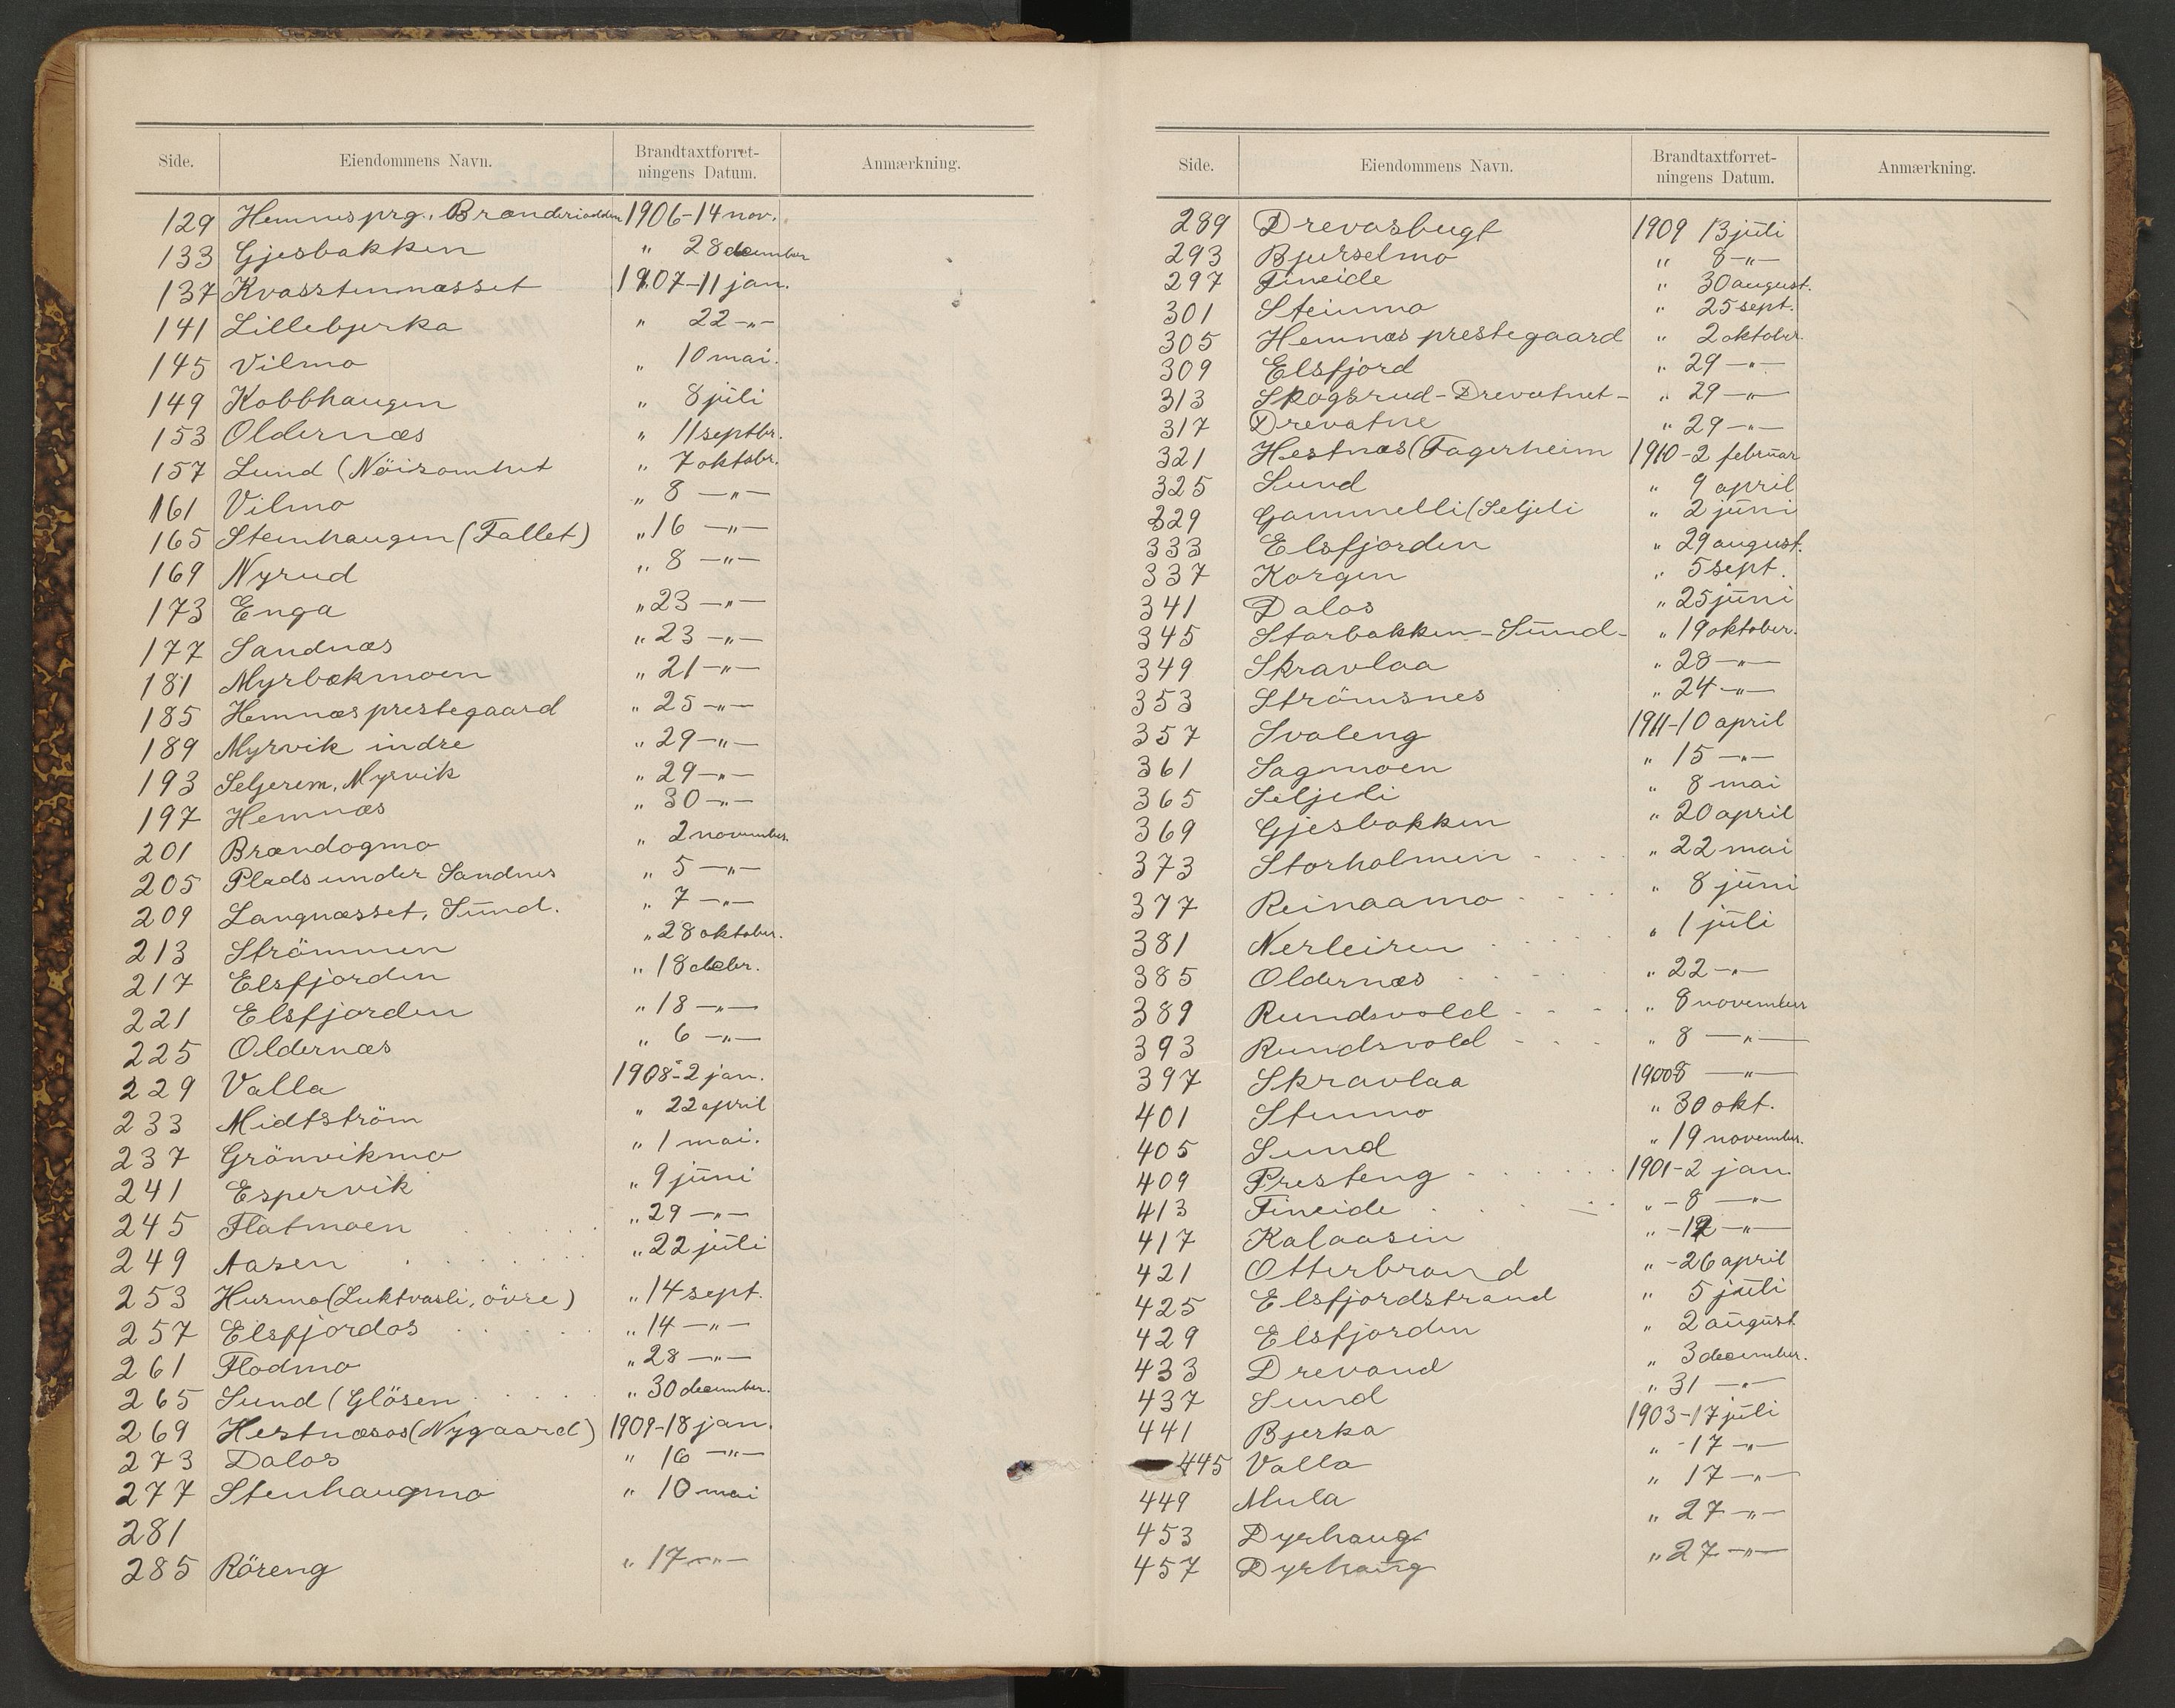 Side. Eiendommens Navn. Brandtaxtforret-
ningens Datum. Anmærkning.
129 Hemnesprg., Brænderiodden 1906-14 nov.
133 Gjesbakken " 28 december
137 Kvasstennæsset 1907-11 jan.
141 Lillebjerka " 22 -"-
145 Vilmo " 10 mai.
149 Kobbhaugen " 8 jūli
153 Oldernæs " 11 septbr.
157 Lund (Nöisomhet " 7 oktobr.
161 Vilmo " 8 -"-
165 Steinhaugen (Fallet) " 16 -"-
169 Nyrud " 8 -"-
173 Enga " 23 -"-
177 Sandnæs " 23 -"-
181 Myrbækmoen " 21 -"-
185 Hemnæs prestegaard " 25 -"-
189 Myrvik indre " 29 -"-
193 Seljerem, Myrvik " 29 -"-
197 Hemnæs " 30 -"-
201 Brændogmo " 2 november.
205 Plads under Sandnes " 5 -"-
209 Langnæsset, Sūnd. " 7 -"-
213 Strömmen " 28 oktober.
217 Elsfjorden " 18 decbr.
221 Elsfjorden " 18 -"-
225 Oldernæs " 6 -"-
229 Valla 1908-2 jan.
233 Midtström " 22 april
237 Grönvikmo " 1 mai.
241 Espervik " 9 jūni
245 Flatmoen " 29 -"-
249 Aasen " 22 jūli
253 Husmo (Luktvasli, övre) " 14 sept.
257 Elsfjordos " 14 -"-
261 Flodmo " 28 -"-
265 Sund (Glösen " 30 december.
269 Hestnæsos (Nygaard) 1909-18 jan.
273 Dalos " 16 -"-
277 Stenhaugmo " 10 mai
281
285 Röreng " 17 -"-
Side. Eiendommens Navn. Brandtaxtforret-
ningens Datum. Anmærkning.
289 Drevasbugt 1909 13 jūli
293 Bjurselmo " 8 -"-
297 Fineide " 30 august.
301 Steinmo " 25 sept.
305 Hemnæs prestegaard " 2 oktober.
309 Elsfjord " 29 -"-
313 Skogsrud - Drevatnet - " 29 -"-
317 Drevatne " 29 -"-
321 Hestnæs (Fagerheim 1910-2 februar
325 Sund " 9 april
329 Gammelli (Seljeli " 2 jūni
333 Elsfjorden " 29 august.
337 Korgen " 5 sept.
341 Dalos " 25 jūni
345 Storbakken - Sūnd - " 19 oktober.
349 Skravlaa " 28 -"-
353 Strömsnes " 24 -"-
357 Svaleng 1911-10 april
361 Sagmoen " 15 -"-
365 Seljeli " 8 mai
369 Gjesbakken " 20 april
373 Storholmen " 22 mai
377 Reinaamo " 8 jūni
381 Nerleiren " 1 jūli
385 Oldernæs " 22 -"-
389 Rundsvold " 8 november
393 Rundsvold " 8 -"-
397 Skravlaa 1900 8 -"-
401 Stenmo " 30 okt.
405 Sund " 19 november.
409 Presteng 1901-2 jan.
413 Fineide " - 8 -"-
417 Kalaasen " - 12 -"-
421 Otterbrand " - 26 april
425 Elsfjordstrand " 5 jūli
429 Elsfjorden " 2 aūgūst
433 Drevand " 3 december.
437 Sund " 31 -"-
441 Bjerka 1903-17 jūli
445 Valla " - 17 -"-
449 Mula " 17 -"-
453 Dyrhaug " 27 -"-
457 Dyrhaūg " 27 -"-